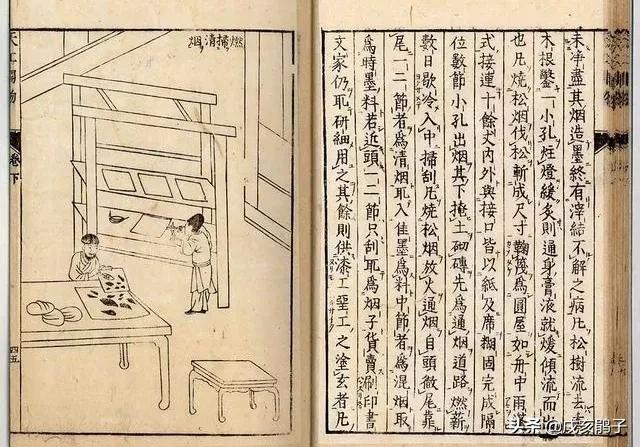 未净盡其烟造墨終有滓結不解之病凡松樹流去
木根鑿一小孔炷燈緩炙則通身膏液就煖傾流而出
也凡燒松烟伐松斬成尺寸鞠篾為圓屋如舟中雨
式接連十餘丈內外與接口皆以紙及席糊固完成隔
位數節小孔出烟其下掩土砌磚先為通烟道路燃薪
數日歇冷入中掃刮凡燒松烟放火通烟自頭徹尾靠
尾一二節者為清烟取入佳墨為料中節者為混烟取
為時墨料若近頭一二節只刮取為烟子貨賣刷印書
文家仍取研細用之其餘則供漆工堊工之塗玄者凡
燃掃清烟
天工開物
卷下
四五
头条 @戌亥鹞子